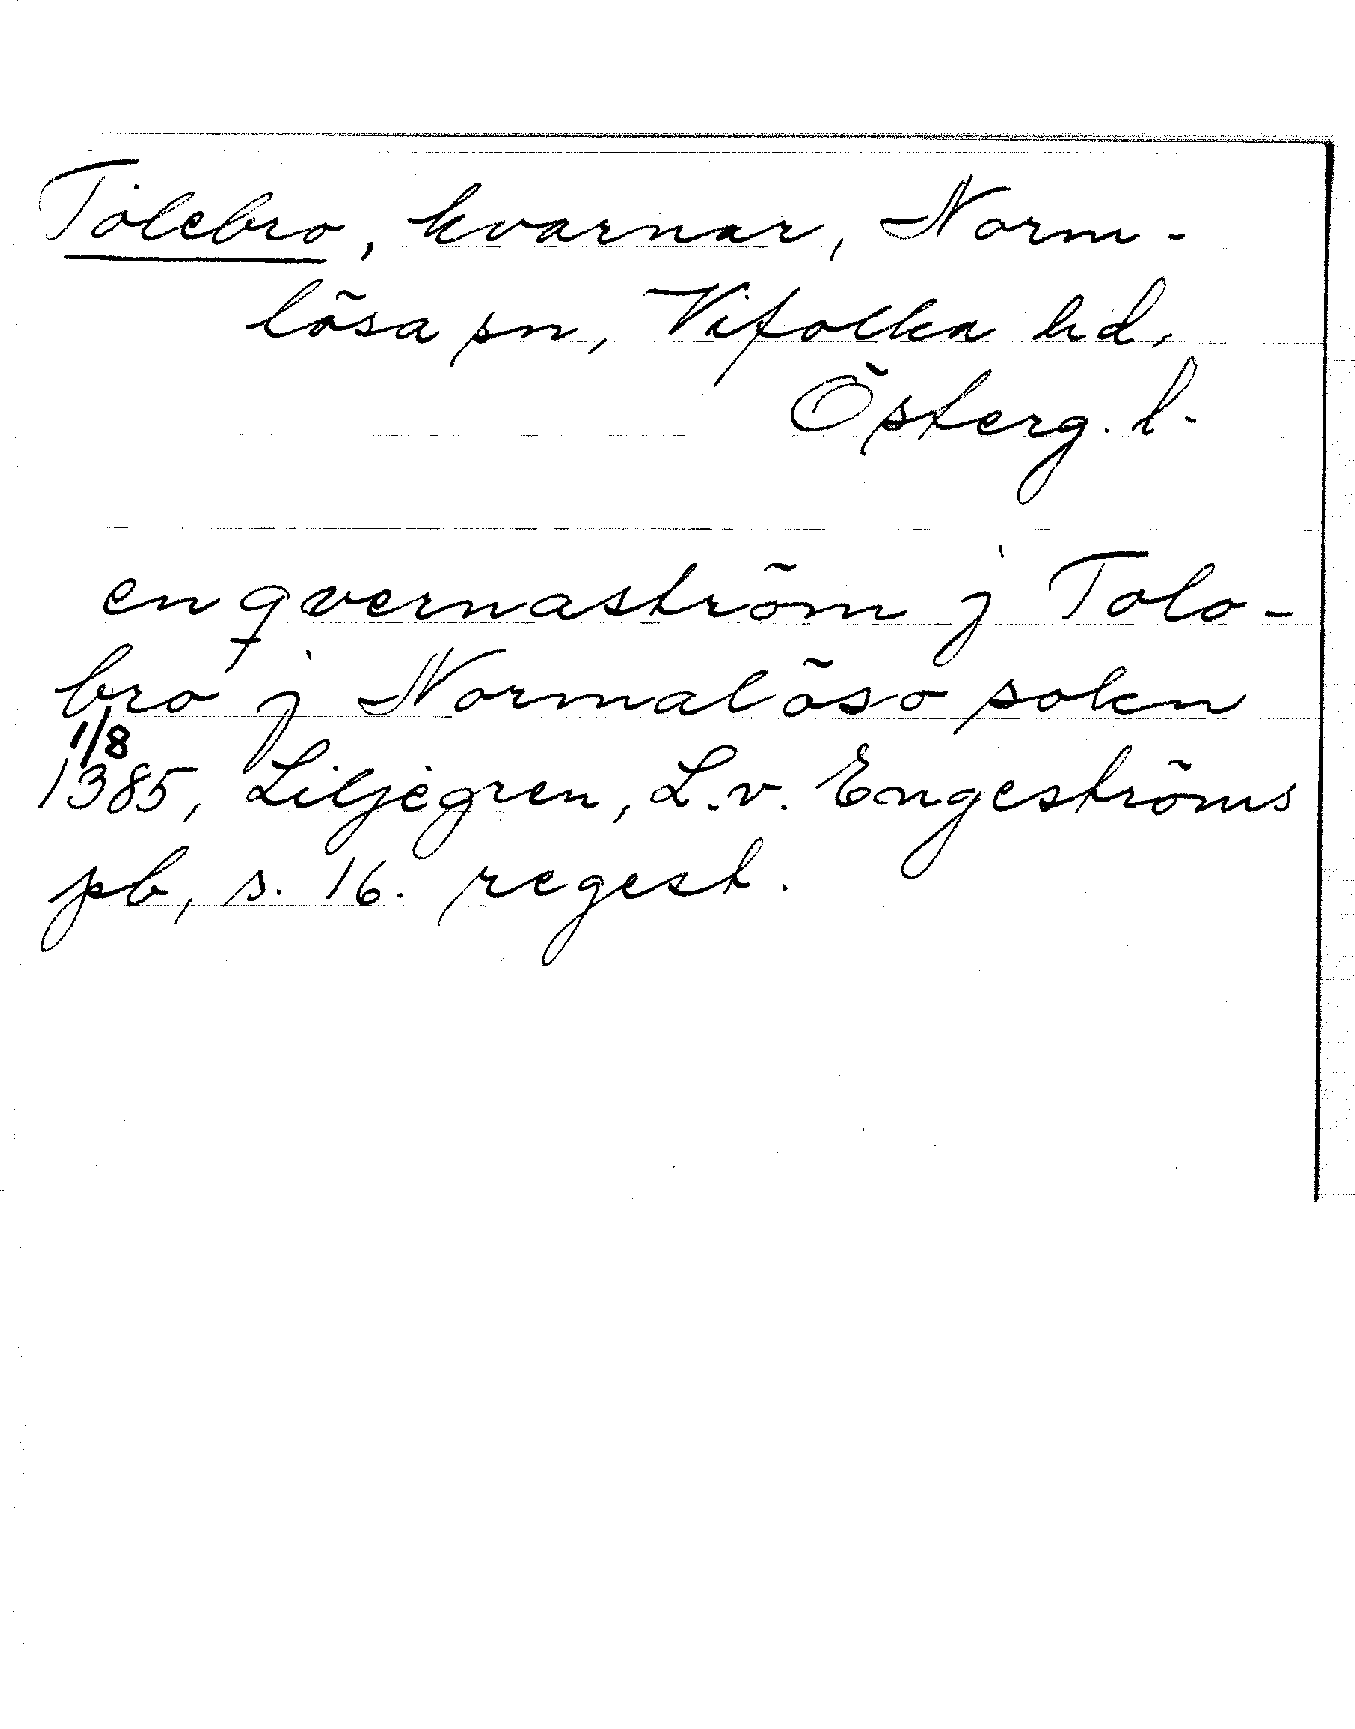 Tolebro, kvarnar, Norm-
lösa sn, Vifolka hd,
Österg. l.
en qvernaström j Tolo-
bro j Normalöso sokn
1/8
1385, Liljegren, L.v. Engeströms
pb, s. 16. regest.